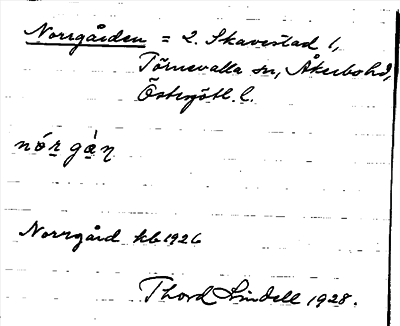 Norrgården = 2. Skavestad 1,
Törnevalla sn, Åkerbo hd,
Östergötl. l.
nórgàn
Norrgård kb 1926
Thord Lindell 1928.